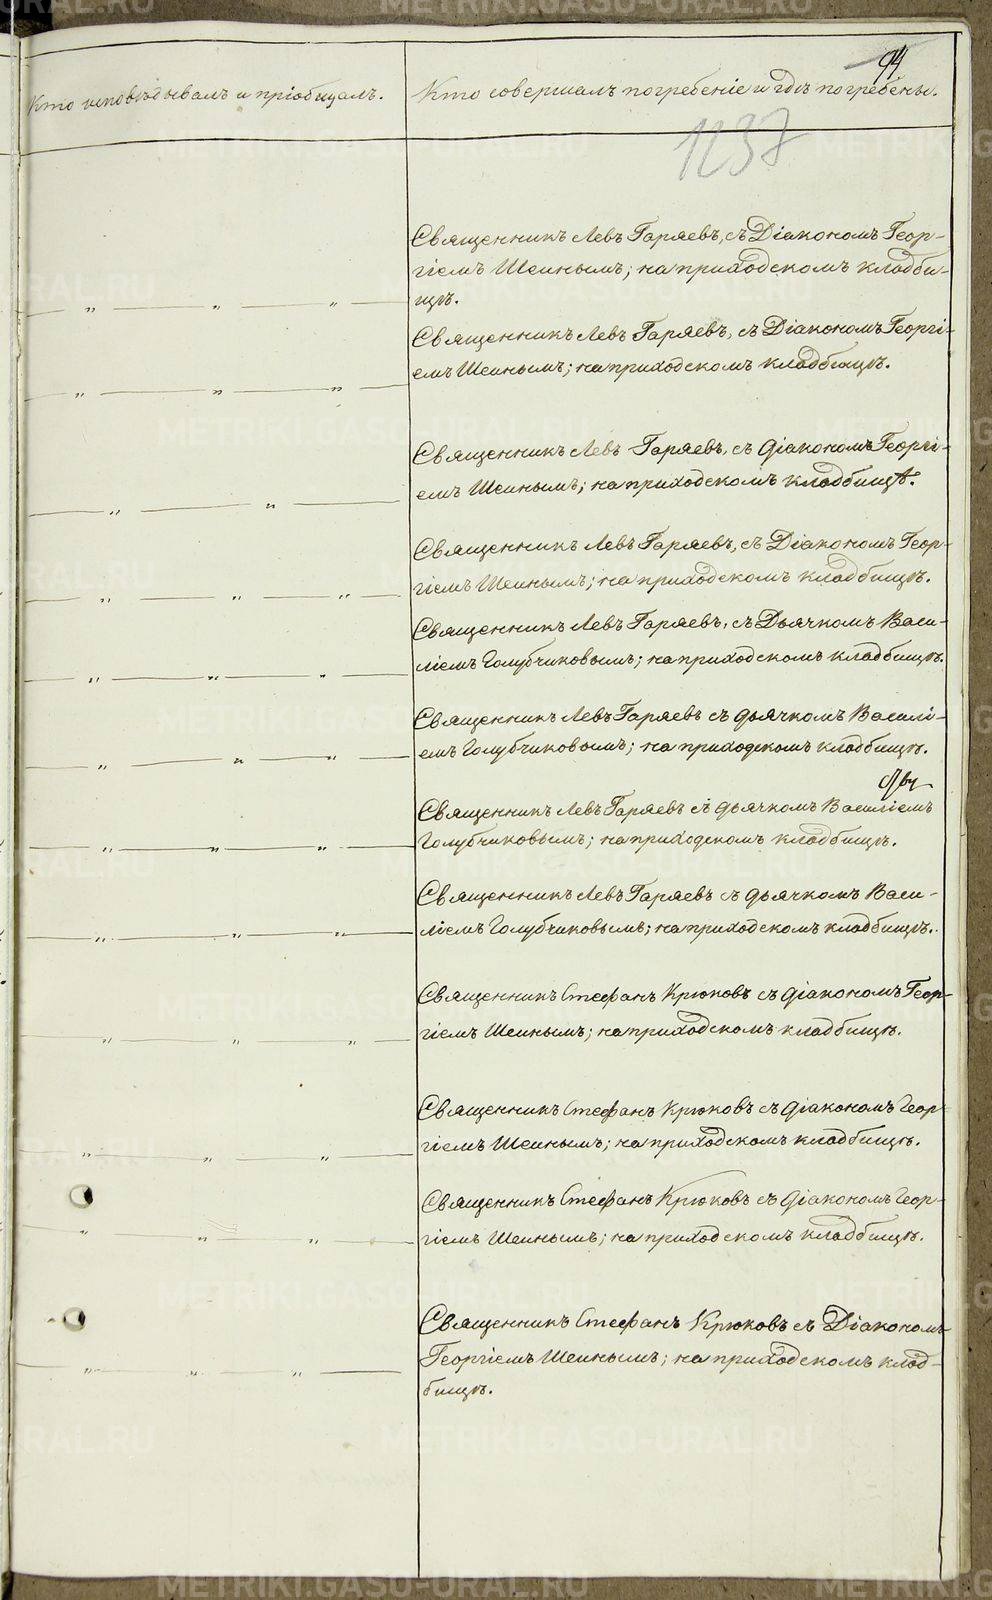 94
Кто исповѣдывалъ и пріобщалъ.
Кто совершалъ погребеніе и гдѣ погребены.
1237
Священникъ Левъ Гаряевъ, съ Діакономъ Геор-
гіемъ Шеинымъ; на приходскомъ кладби-
щѣ.
„ „ „
Священникъ Левъ Гаряевъ, съ Діакономъ Георгі-
емъ Шеинымъ; на приходскомъ кладбищѣ.
„ „ „
Священникъ Левъ Гаряевъ, съ діакономъ Георгі-
емъ Шеинымъ; на приходскомъ кладбищѣ.
„ „
Священникъ Левъ Гаряевъ, съ Діакономъ Геор-
гіемъ Шеинымъ; на приходскомъ кладбищѣ.
„ „ „
Священникъ Левъ Гаряевъ, съ Дьячкомъ Васи-
ліемъ Голубчиковымъ; на приходскомъ кладбищѣ.
„ „ „
Священникъ Левъ Гаряевъ съ дьячкомъ Василі-
емъ Голубчиковымъ; на приходскомъ кладбищѣ.
„ „ „
Священникъ Левъ Гаряевъ съ дьячкомъ Василіемъ
Голубчиковымъ; на приходскомъ кладбищѣ.
„ „ „
Священникъ Левъ Гаряевъ съ дьячкомъ Васи-
ліемъ Голубчиковымъ; на приходскомъ кладбищѣ.
„ „ „
Священникъ Стефанъ Крюковъ съ діакономъ Геор-
гіемъ Шеинымъ; на приходскомъ кладбищѣ.
„ „ „
Священникъ Стефанъ Крюковъ съ діакономъ Геор-
гіемъ Шеинымъ; на приходскомъ кладбищѣ.
„ „ „
Священникъ Стефанъ Крюковъ съ діакономъ Геор-
гіемъ Шеинымъ; на приходскомъ кладбищѣ.
„ „ „
Священникъ Стефанъ Крюковъ съ Діакономъ
Георгіемъ Шеинымъ; на приходскомъ клад-
бищѣ.
„ „ „
METRIKI.GASO-URAL.RU